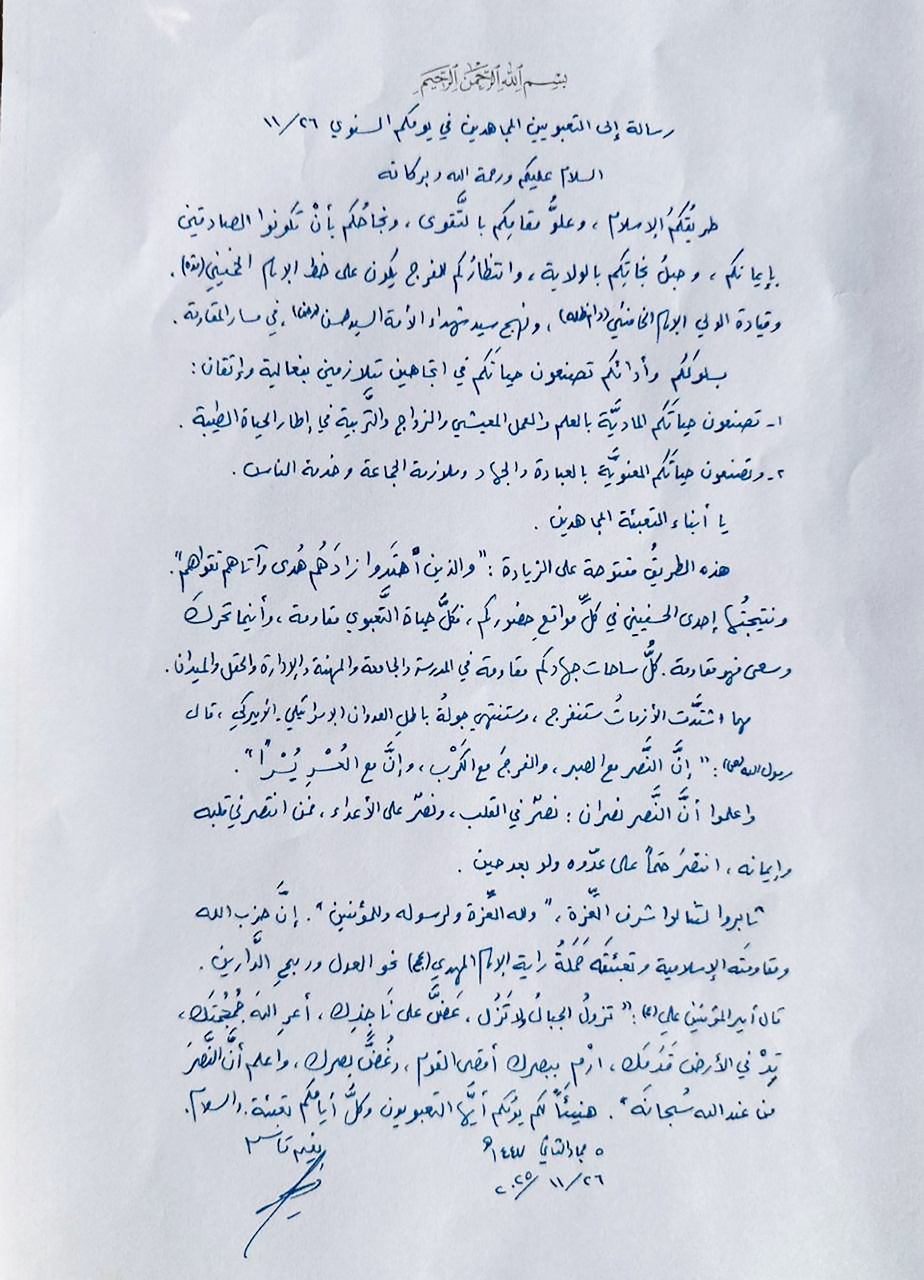 بسم الله الرحمن الرحيم
رسالة إلى التعبويين المجاهدين في يومكم السنوي ١١/٢٦
السلام عليكم ورحمة الله وبركاته
طريقُكُم الإسلام، وعلوُّ مقامِكم بالتَّقوى، ونجاحُكم بأنْ تكونوا الصادقين
بإيمانكم، وحبلُ نجاتِكم بالولاية، وانتظارُكم للفرج يكون على خط الإمام الخميني (قده).
وقيادة الولي الإمام الخامنئي (دام ظله)، ونهج سيد شهداء الأمة السيد حسن (رض)، في مسار المقاومة.
بسلوككم وأدائكم تصنعون حياتَكم في اتجاهين متلازمين بفعالية وإتقان:
١- تصنعون حياتَكم الماديَّة بالعلم والعمل المعيشي والزواج والتَّربية في إطار الحياة الطيبة.
٢- وتصنعون حياتَكم المعنويَّة بالعبادة والجهاد وملازمة الجماعة وخدمة الناس.
يا أبناء التعبئة المجاهدين.
هذه الطريقُ مفتوحة على الزيادة: "والذين اهْتَدوا زادَهُم هُدى وآتاهم تقواهم".
ونتيجتُها إحدى الحسنيين في كلِّ مواقع حضوركم، فكلُّ حياة التَّعبوي مقاومة، وأينما تحركَ
وسعى فهو مقاومة. كلُّ ساحات جهادكم مقاومة في المدرسة والجامعة والمهنة والإدارة والحقل والميدان.
مهما اشتدَّت الأزماتُ ستنفرج، وستنتهي جولةُ باطلِ العدوان الإسرائيلي-الأميركي، قال
رسول الله (ص): "إنَّ النَّصر مع الصبر، والفرجَ مع الكَرْب، وإنَّ مع العُسْرِ يُسْراً".
واعلموا أنَّ النَّصر نصران: نصرٌ في القلب، ونصرٌ على الأعداء، فمن انتصر في قلبه
وإيمانه، انتصرَ حتماً على عدّوه ولو بعد حين.
ثابروا لتنالوا شرف العزَّة، "ولله العزَّة ولرسوله وللمؤمنين". إنَّ حزب الله
ومقاومتَه الإسلامية وتعبئتَه حَمَلةُ راية الإمام المهدي (عج) نحو العدل وربحِ الدَّارين.
قال أمير المؤمنين علي (ع): "تزولُ الجبالُ ولا تَزُل، عَضَّ على نَاجذِك، أعرِ اللهَ جُمْجُمَتَك،
تِدْ في الأرض قَدَمَك، ارْمِ ببصرك أقصى القوم، وغُضَّ بصرك، واعلم أنَّ النَّصرَ
من عند الله سُبحانَه". هنيئاً لكم يومُكم أيُّها التعبويون وكلُّ أيامِكم تعبئة. والسلام.
٥ جماد الثاني ١٤٤٧هـ
نعيم قاسم
٢٠٢٥/١١/٢٦